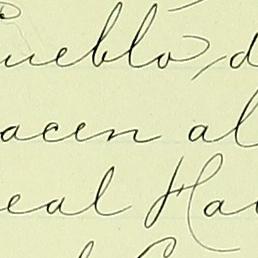 Pueblo, d
acen al
eal Ha